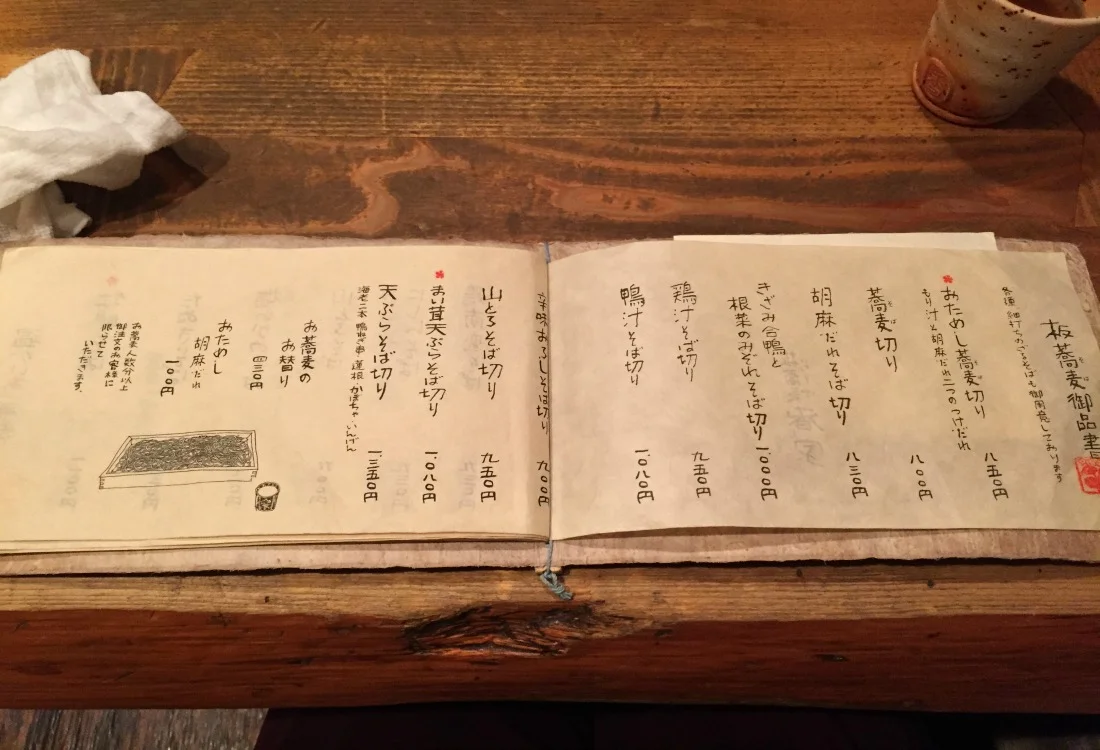 板蕎麦御品書
各種 細打ちのざるそばも御用意しております
おためし蕎麦切り 八五〇円
もり汁と胡麻だれ二つのつけだれ
蕎麦切り 八〇〇円
胡麻だれそば切り 八三〇円
きざみ合鴨と
根菜のみぞれそば切り 一、〇〇〇円
鶏汁そば切り 九五〇円
鴨汁そば切り 一、〇八〇円
辛味おろしそば切り 九〇〇円
山とろそば切り 九五〇円
まい茸天ぷらそば切り 一、〇八〇円
天ぷらそば切り 一、三五〇円
海老二本 鴨ねぎ串 蓮根 かぼちゃ いんげん
お蕎麦の
お替り 四三〇円
おためし
胡麻だれ 一〇〇円
お蕎麦人数分以上
御注文のお客様に
限らせて
いただきます。